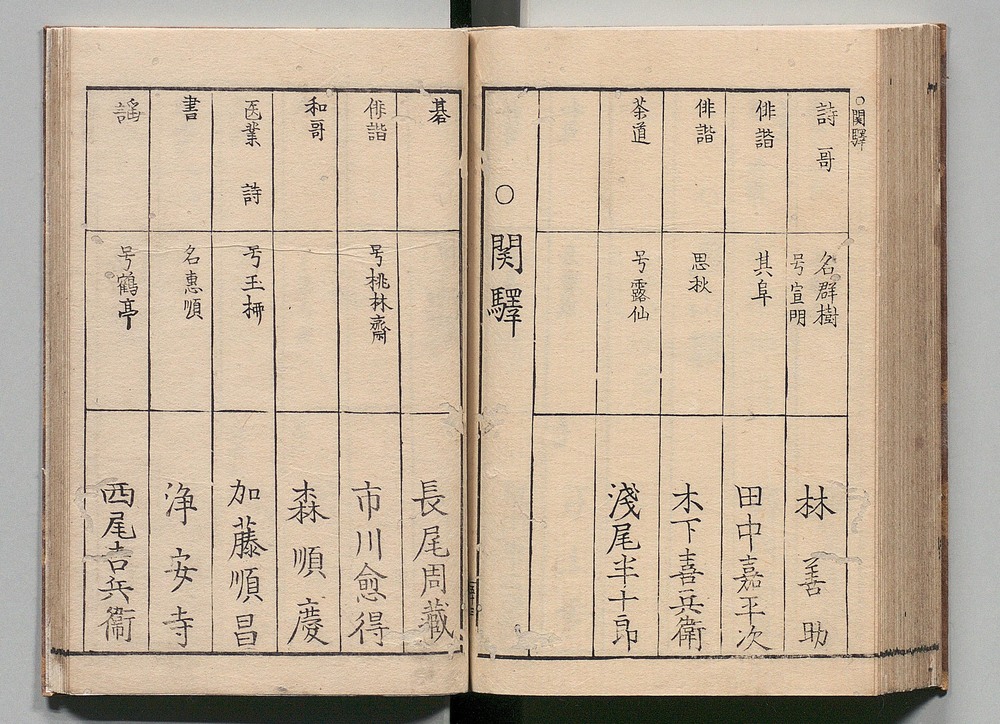 ○関驛
詩 哥
名群樹
号宣明
林 善 助
俳諧
其阜
田中嘉平次
俳諧
思秋
木下喜兵衛
茶道
号露仙
淺尾半十郎
○関驛
碁
長尾周藏
俳諧
号桃林齋
市川愈得
和哥
森順慶
医業 詩
号玉
加藤順昌
書
名惠順
浄安寺
謡
号鶴亭
西尾吉兵衛